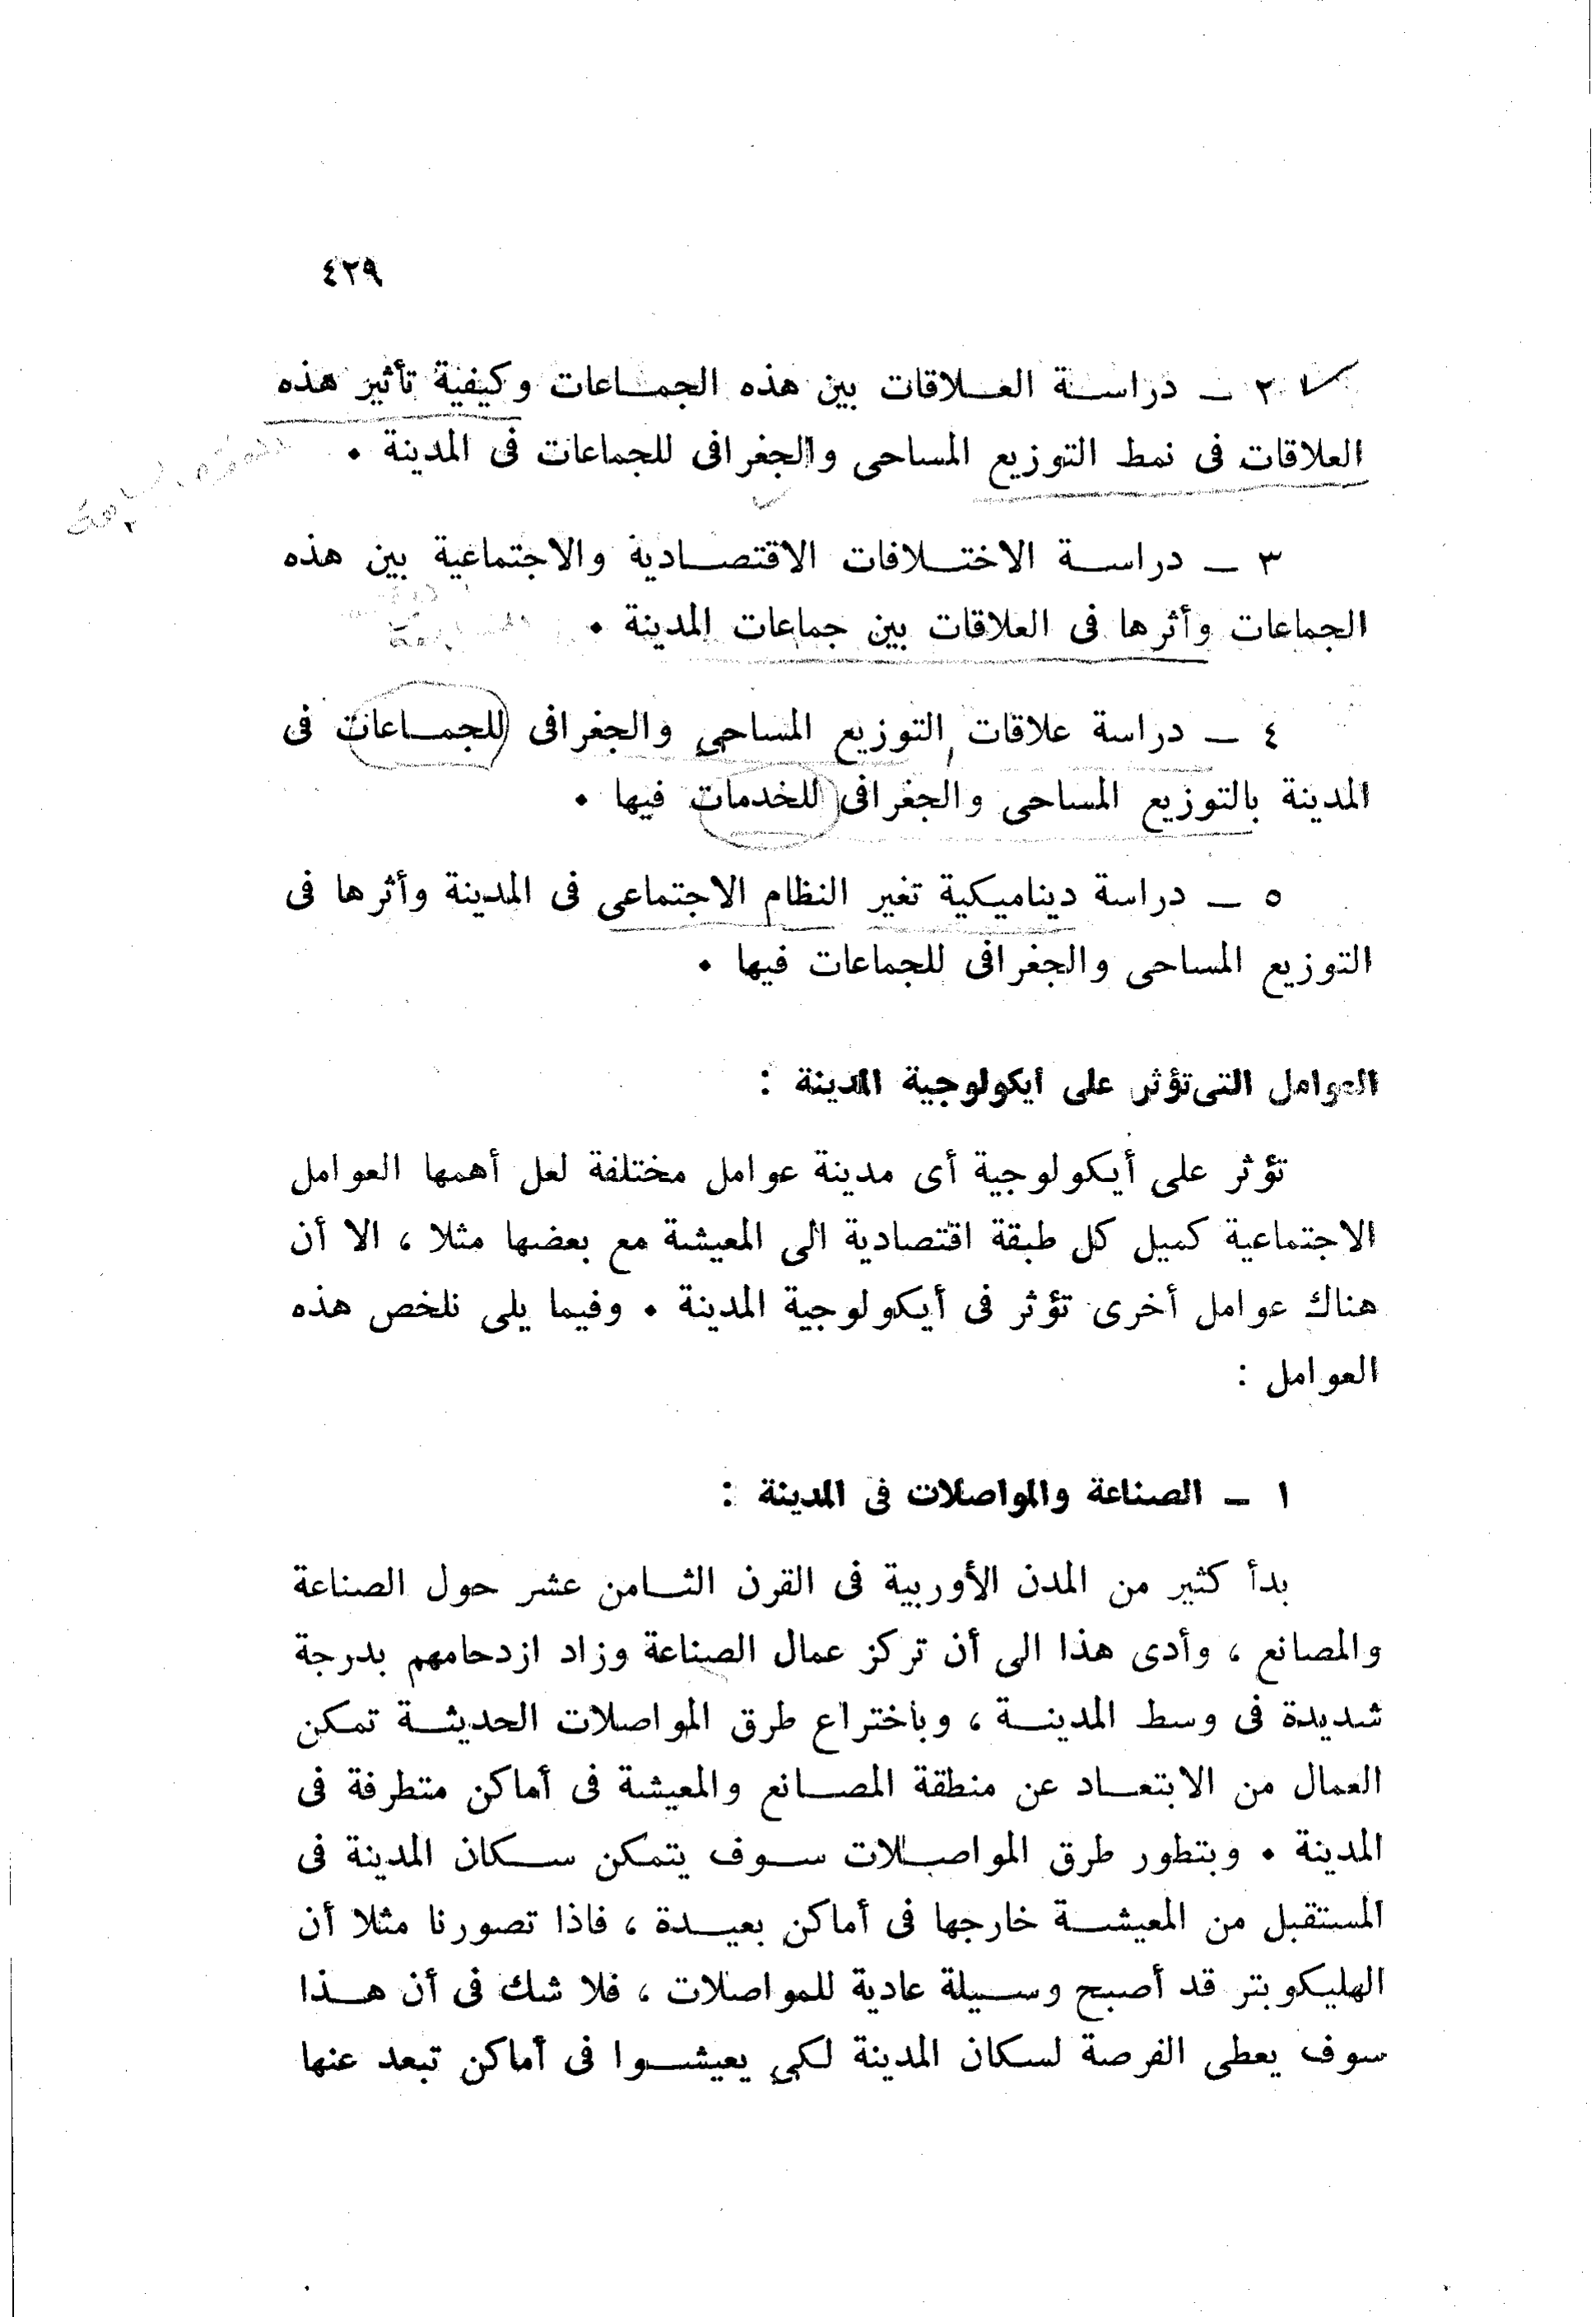 ٤٢٩
٢ ـ دراسـة العـلاقات بين هذه الجمـاعات وكيفية تأثير هذه
العلاقات فى نمط التوزيع المساحى والجغرافى للجماعات فى المدينة .
٣ ـ دراسـة الاختـلافات الاقتصـادية والاجتماعية بين هذه
الجماعات وأثرها فى العلاقات بين جماعات المدينة .
٤ ـ دراسة علاقات التوزيع المساحى والجغرافى للجمـاعات فى
المدينة بالتوزيع المساحى والجغرافى للخدمات فيها .
٥ ـ دراسة ديناميكية تغير النظام الاجتماعى فى المدينة وأثرها فى
التوزيع المساحى والجغرافى للجماعات فيها .
العوامل التى تؤثر على ايكولوجية المدينة :
تؤثر على أيكولوجية أى مدينة عوامل مختلفة لعل أهمها العوامل
الاجتماعية كميل كل طبقة اقتصادية الى المعيشة مع بعضها مثلا ، الا أن
هناك عوامل أخرى تؤثر فى أيكولوجية المدينة . وفيما يلى نلخص هذه
العوامل :
١ ـ الصناعة والمواصلات فى المدينة :
بدأ كثير من المدن الأوربية فى القرن الثـامن عشر حول الصناعة
والمصانع ، وأدى هذا الى أن تركز عمال الصناعة وزاد ازدحامهم بدرجة
شديدة فى وسط المدينـة ، وباختراع طرق المواصلات الحديثـة تمكن
العمال من الابتعـاد عن منطقة المصـانع والمعيشة فى أماكن متطرفة فى
المدينة . وبتطور طرق المواصـلات سـوف يتمكن سـكان المدينة فى
المستقبل من المعيشـة خارجها فى أماكن بعيـدة ، فاذا تصورنا مثلا أن
الهليكوبتر قد أصبح وسـيلة عادية للمواصلات ، فلا شك فى أن هـذا
سوف يعطى الفرصة لسكان المدينة لكى يعيشـوا فى أماكن تبعد عنها